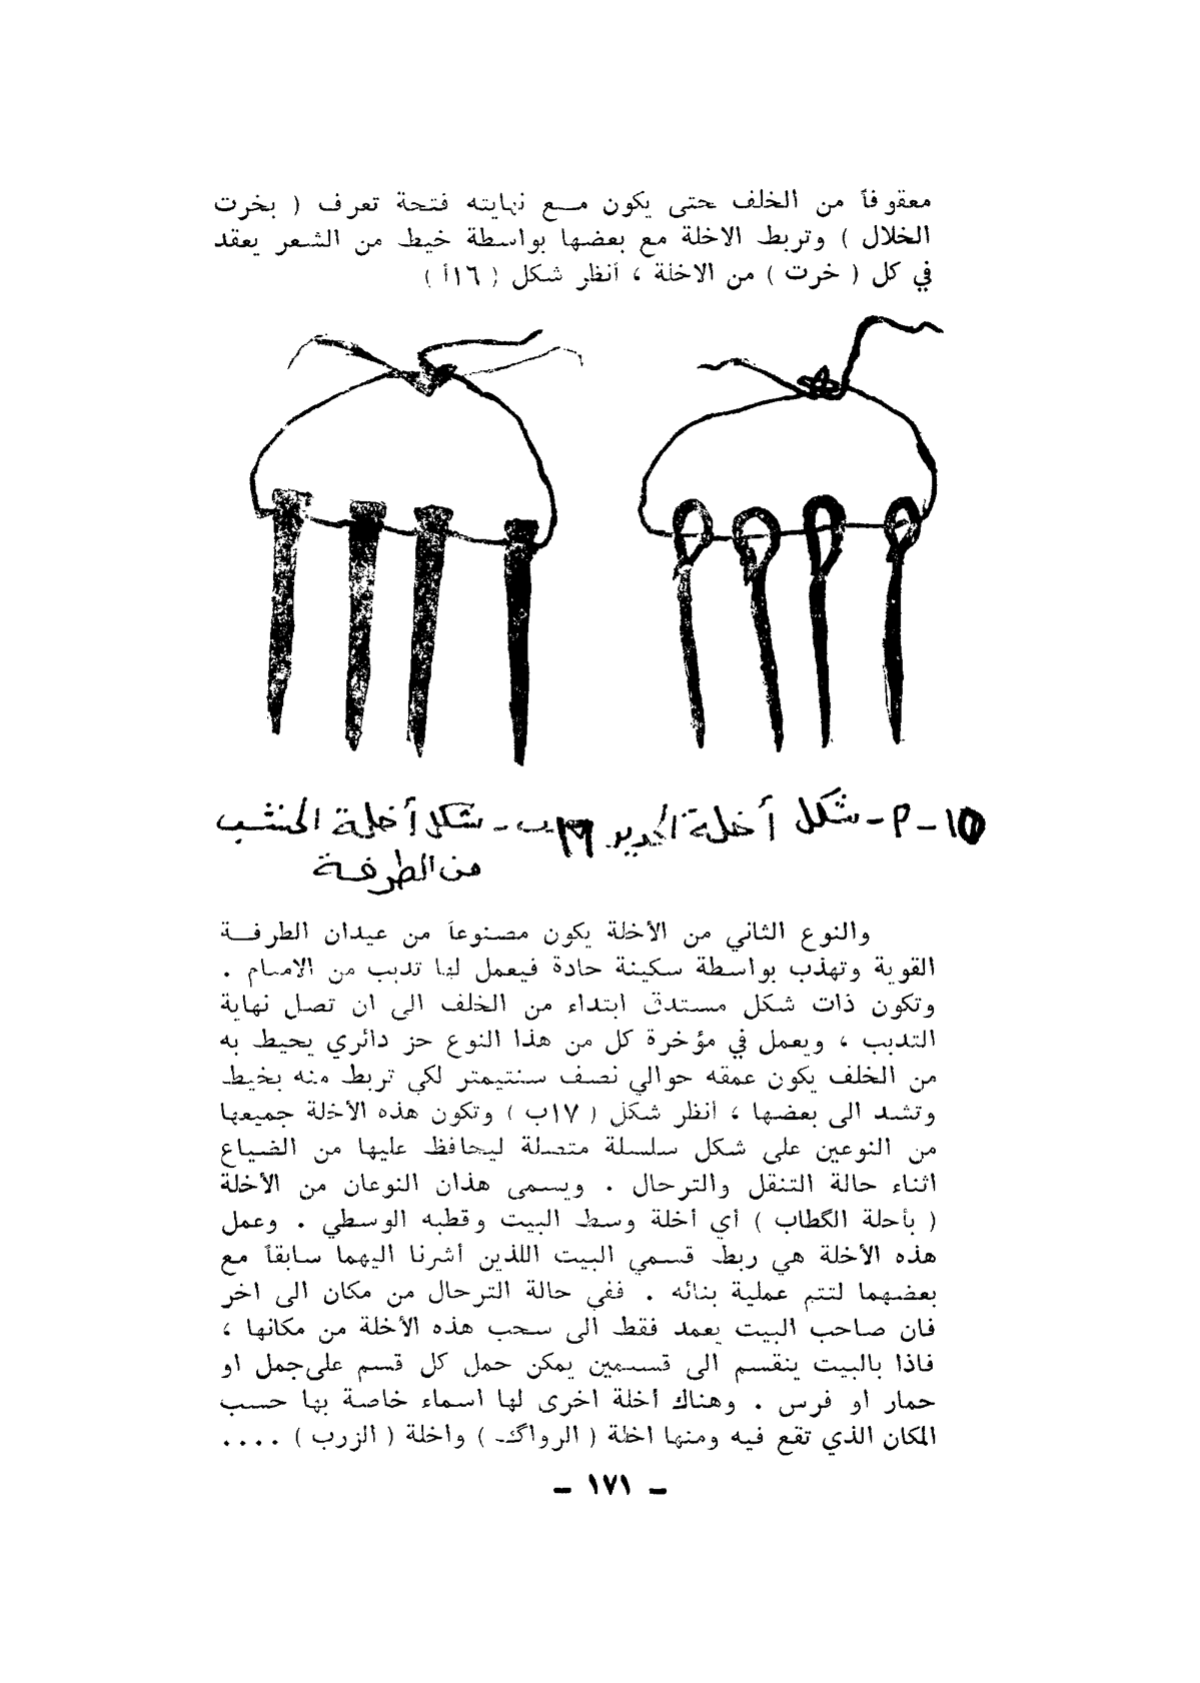 معقوفاً من الخلف حتى يكون مـع نهايته فتحة تعرف ( بخرت
الخلال ) وتربط الاخلة مع بعضها بواسطة خيط من الشعر يعقد
في كل ( خرت ) من الاخلة ، أنظر شكل ( ١٦أ )
شكل أخلة الحديد
ب - شكل أخلة الخشب
من الطرفة
والنوع الثاني من الأخلة يكون مصنوعاً من عيدان الطرفـة
القوية وتهذب بواسطة سكينة حادة فيعمل لها تدبب من الامام .
وتكون ذات شكل مستدق ابتداء من الخلف الى ان تصل نهاية
التدبب ، ويعمل في مؤخرة كل من هذا النوع حز دائري يحيط به
من الخلف يكون عمقه حوالي نصف سنتيمتر لكي تربط منه بخيط
وتشد الى بعضها ، أنظر شكل ( ١٧ب ) وتكون هذه الأخلة جميعها
من النوعين على شكل سلسلة متصلة ليحافظ عليها من الضياع
اثناء حالة التنقل والترحال . ويسمى هذان النوعان من الأخلة
( بأحلة الگطاب ) أي أخلة وسط البيت وقطبه الوسطي . وعمل
هذه الأخلة هي ربط قسمي البيت اللذين أشرنا اليهما سابقاً مع
بعضهما لتتم عملية بنائه . ففي حالة الترحال من مكان الى اخر
فان صاحب البيت يعمد فقط الى سحب هذه الأخلة من مكانها ،
فاذا بالبيت ينقسم الى قسمين يمكن حمل كل قسم على جمل او
حمار او فرس . وهناك أخلة اخرى لها اسماء خاصة بها حسب
المكان الذي تقع فيه ومنها اخلة ( الرواگ ) واخلة ( الزرب ) ....
- ١٧١ -